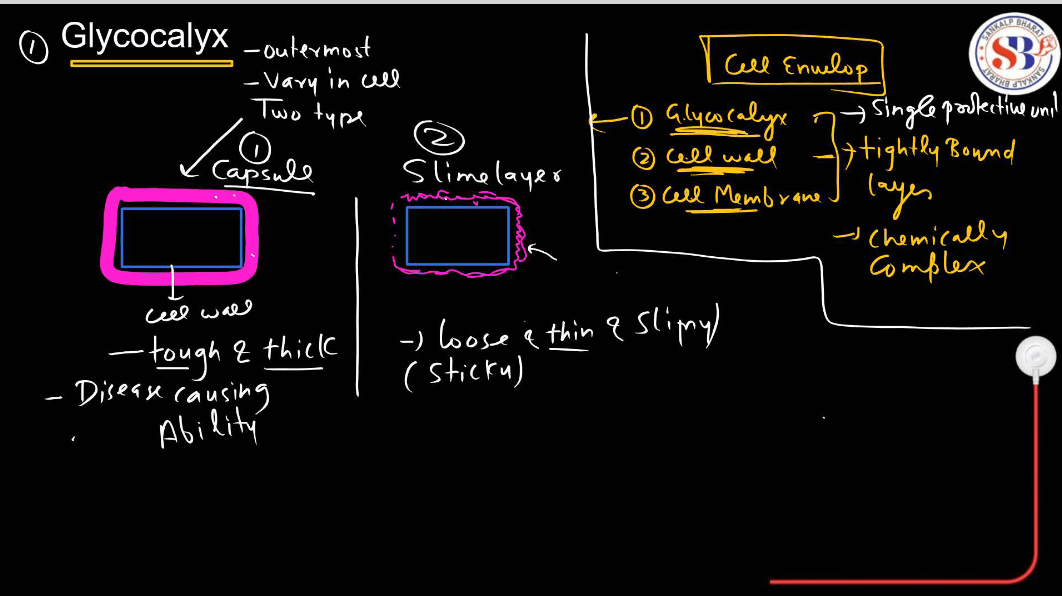 ① Glycocalyx
- outermost
- Vary in cell
Two type
①
Capsule
cell wall
- tough & thick
- Disease causing
Ability
②
Slimelayer
-> loose & thin & Slipny
(Sticky)
Cell Envelop
① Glycocalyx
② Cell wall
③ Cell Membrane
-> Single protective unit
-> tightly Bound
layes
-> Chemically
Complex
SANKALP BHARAT
SB
SANKALP BHARAT